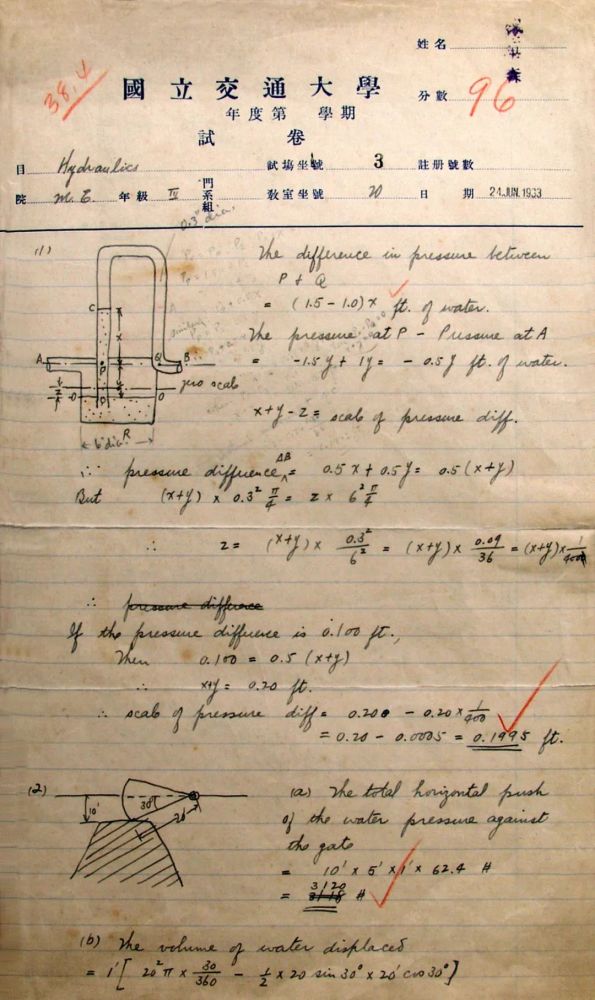 姓名
38.4
國立交通大學
分數 96
年度第 學期
試卷
目 Hydraulics 試場坐號 3 註册號數
院 M.E. 年級 IV 門系組 教室坐號 20 日期 24.JUN.1933
0.3" dia.
(1) The difference in pressure between
P & Q
= (1.5 - 1.0)x ft. of water.
The pressure at P - Pressure at A
= -1.5y + 1y = -0.5y ft. of water.
C
x
A P Q B
y
zero scale
z O O
D
6" dia. R
x+y-z = scale of pressure diff.
∴ pressure diffuence AB = 0.5x + 0.5y = 0.5(x+y)
But (x+y) x 0.3² π/4 = z x 6² π/4
∴ z = (x+y) x 0.3²/6² = (x+y) x 0.09/36 = (x+y) x 1/400
∴ pressure difference
If the pressure diffuence is 0.100 ft.,
Then 0.100 = 0.5 (x+y)
∴ x+y = 0.20 ft.
∴ scale of pressure diff = 0.200 - 0.20 x 1/400
= 0.20 - 0.0005 = 0.1995 ft.
(2) (a) The total horizontal push
10' 30° 20'
of the water pressure against
the gate
= 10' x 5' x 1' x 62.4 #
= 3120 #
(b) The volume of water displaced
= 1' [ 20² π x 30/360 - 1/2 x 20 sin 30° x 20' cos 30° ]